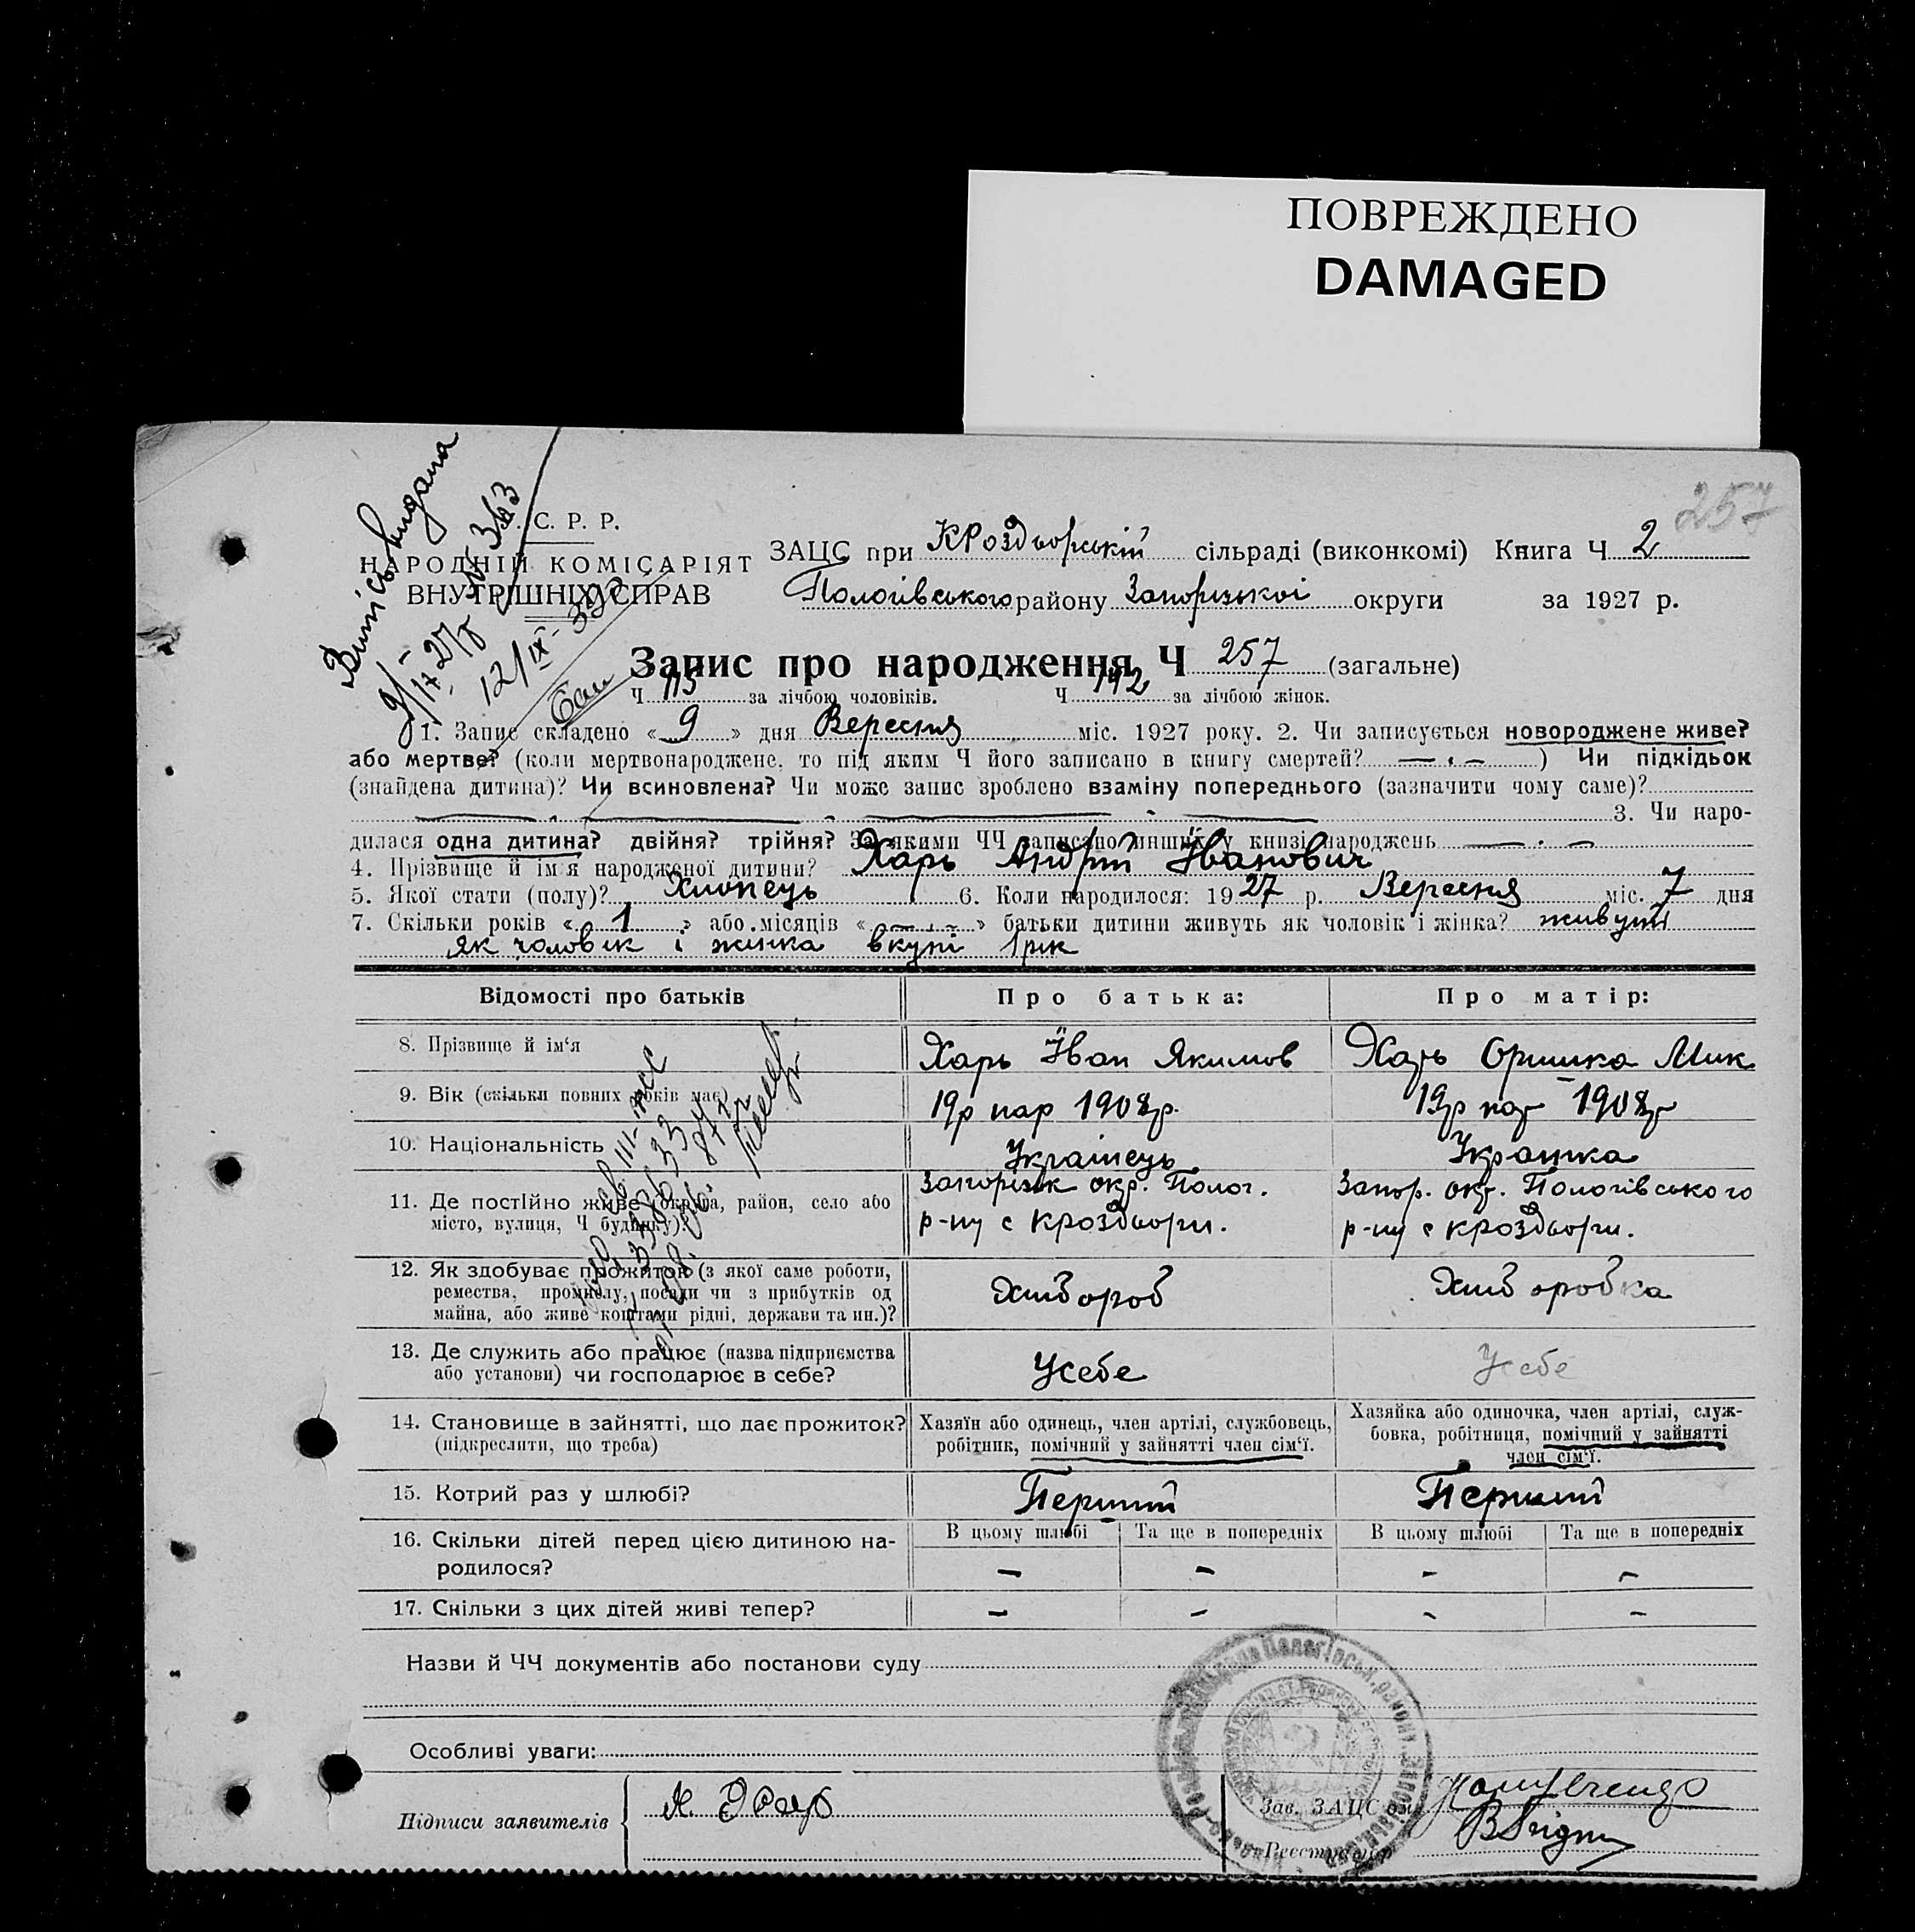 ПОВРЕЖДЕНО
DAMAGED
257
Випісь видана
С. Р. Р.
НАРОДНІЙ КОМІСАРІЯТ
ВНУТРІШНІХ СПРАВ
ЗАЦС при КРоздворській сільраді (виконкомі) Книга Ч 2
Пологівського району Запорізької округи за 1927 р.
Запис про народження Ч 257 (загальне)
Ч 115 за лічбою чоловіків. Ч 142 за лічбою жінок.
1. Запис складено « 9 » дня Вересня міс. 1927 року. 2. Чи записується новороджене живе?
або мертве? (коли мертвонароджене, то під яким Ч його записано в книгу смертей? — . — ) Чи підкідьок
(знайдена дитина)? Чи всиновлена? Чи може запис зроблено взаміну попереднього (зазначити чому саме)?
3. Чи наро-
дилася одна дитина? двійня? трійня? За якими ЧЧ записано инших у книзі народжень — . —
4. Прізвище й ім'я народженої дитини? Харь Андрій Іванович
5. Якої стати (полу)? Хлопець 6. Коли народилося: 1927 р. Вересня міс. 7 дня
7. Скільки років « 1 » або місяців « — . — » батьки дитини живуть як чоловік і жінка? живуть
як чоловік і жинка вкупі 1 рік
Відомості про батьків Про батька: Про матір:
8. Прізвище й ім'я Харь Іван Якимов Харь Оришка Мик
9. Вік (скільки повних років має) 19р нар 1908р. 19р нар 1908р
10. Національність Українець Українка
11. Де постійно живе (округа, район, село або
місто, вулиця, Ч будинку)? Запоріжк окр. Полог.
р-ну с Кроздвори. Запор. окр. Пологівського
р-ну с Кроздвори.
12. Як здобуває прожиток (з якої саме роботи,
ремества, промислу, посади чи з прибутків од
майна, або живе коштами рідні, держави та ин.)? Хліб ороб Хліб оробка
13. Де служить або працює (назва підприємства
або установи) чи господарює в себе? Усебе Усебе
14. Становище в зайнятті, що дає прожиток?
(підкреслити, що треба) Хазяїн або одинець, член артілі, службовець,
робітник, помічний у зайнятті член сім'ї. Хазяйка або одиночка, член артілі, служ-
бовка, робітниця, помічний у зайнятті
член сім'ї.
15. Котрий раз у шлюбі? Перший Перший
16. Скільки дітей перед цією дитиною на-
родилося? В цьому шлюбі Та ще в попередніх В цьому шлюбі Та ще в попередніх
— — — —
17. Скільки з цих дітей живі тепер? — — — —
Назви й ЧЧ документів або постанови суду
Особливі уваги:
Підписи заявителів
Зав. ЗАЦС'ом
Реєстратор